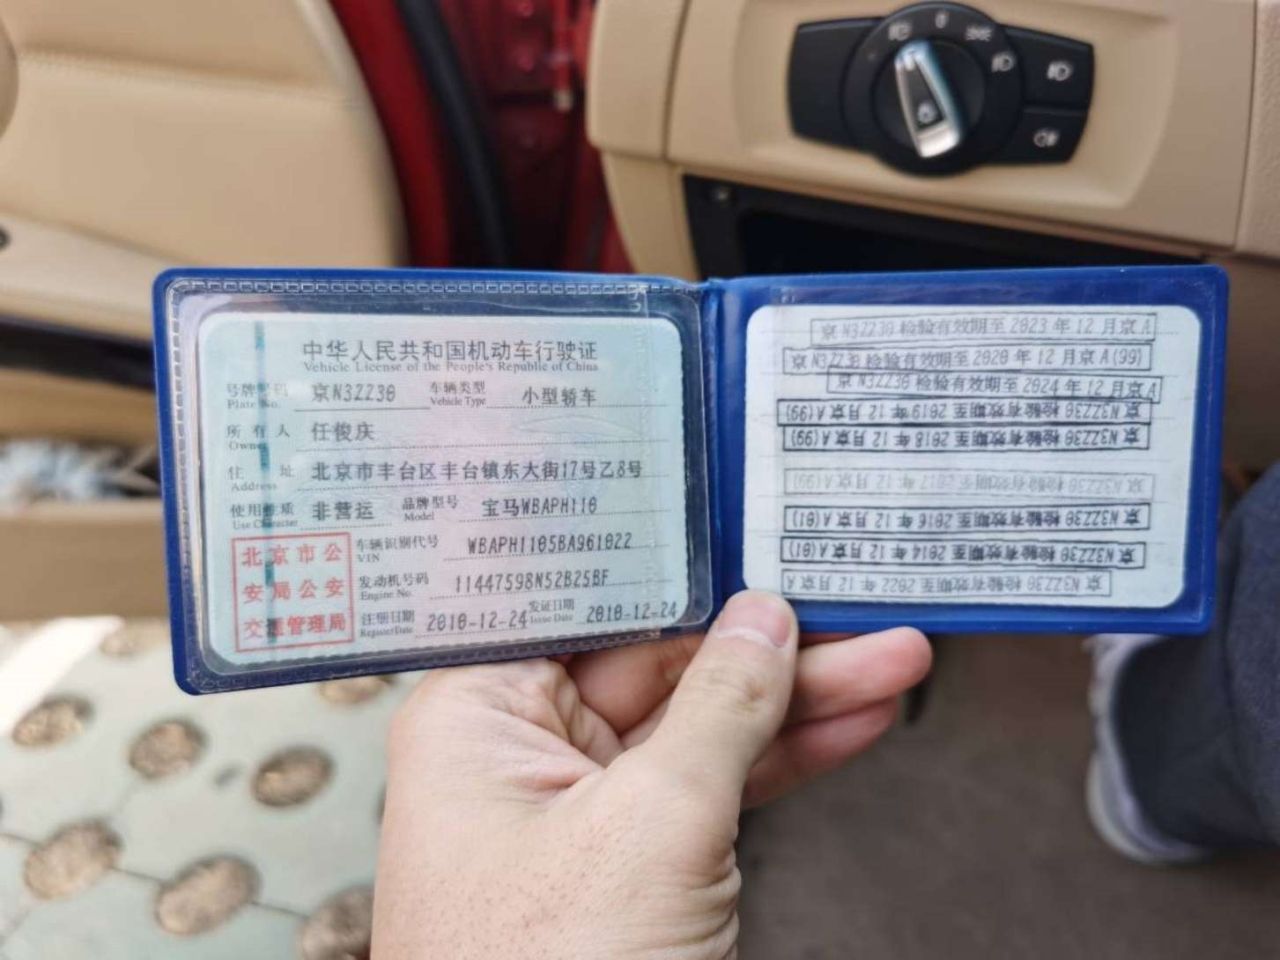 中华人民共和国机动车行驶证
Vehicle License of the People's Republic of China
号牌号码 京N3ZZ30 车辆类型 小型轿车
Plate No. Vehicle Type
所有人 任俊庆
Owner
住址 北京市丰台区丰台镇东大街17号乙8号
Address
使用性质 非营运 品牌型号 宝马WBAPH110
Use Character Model
北京市公安局公安交通管理局
车辆识别代号 WBAPH1105BA961022
VIN
发动机号码 11447598N52B25BF
Engine No.
注册日期 2010-12-24 发证日期 2010-12-24
Register Date Issue Date
京N3ZZ30 检验有效期至 2023 年 12 月京A
京N3ZZ30 检验有效期至 2020 年 12 月京A(99)
京N3ZZ30 检验有效期至 2024 年 12 月京A
京N3ZZ30 检验有效期至 2019 年 12 月京A(99)
京N3ZZ30 检验有效期至 2018 年 12 月京A(99)
京N3ZZ30 检验有效期至 2017 年 12 月京A(99)
京N3ZZ30 检验有效期至 2016 年 12 月京A(01)
京N3ZZ30 检验有效期至 2014 年 12 月京A(01)
京N3ZZ30 检验有效期至 2022 年 12 月京A